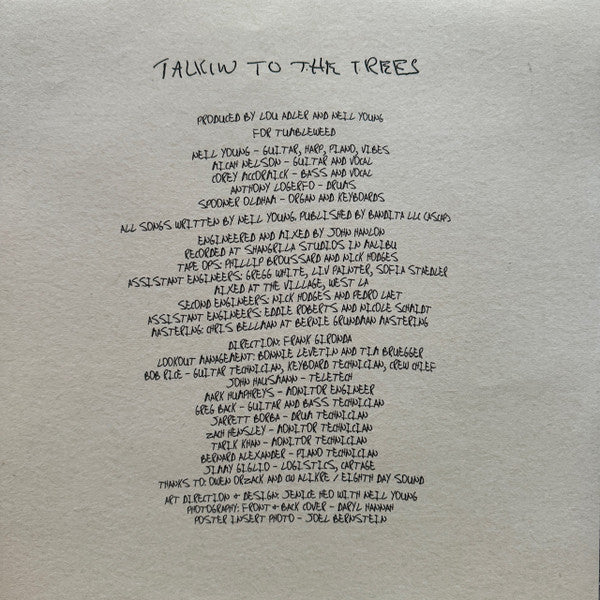 TALKIN TO THE TREES
PRODUCED BY LOU ADLER AND NEIL YOUNG
FOR TUMBLEWEED
NEIL YOUNG - GUITAR, HARP, PIANO, VIBES
MICAH NELSON - GUITAR AND VOCAL
COREY MCCORMICK - BASS AND VOCAL
ANTHONY LOGERFO - DRUMS
SPOONER OLDHAM - ORGAN AND KEYBOARDS
ALL SONGS WRITTEN BY NEIL YOUNG. PUBLISHED BY BANDITA LLC (ASCAP)
ENGINEERED AND MIXED BY JOHN HANLON
RECORDED AT SHANGRILA STUDIOS IN MALIBU
TAPE OPS: PHILLIP BROUSSARD AND NICK HODGES
ASSISTANT ENGINEERS: GREGG WHITE, LIV PAINTER, SOFIA STAEDLER
MIXED AT THE VILLAGE, WEST LA
SECOND ENGINEERS: NICK HODGES AND PEDRO LAET
ASSISTANT ENGINEERS: EDDIE ROBERTS AND NICOLE SCHMIDT
MASTERING: CHRIS BELLMAN AT BERNIE GRUNDMAN MASTERING
DIRECTION: FRANK GIRONDA
LOOKOUT MANAGEMENT: BONNIE LEVETIN AND TIM BRUEGGER
BOB RICE - GUITAR TECHNICIAN, KEYBOARD TECHNICIAN, CREW CHIEF
JOHN HAUSMANN - TELETECH
MARK HUMPHREYS - MONITOR ENGINEER
GREG BACK - GUITAR AND BASS TECHNICIAN
JARRETT BORBA - DRUM TECHNICIAN
ZACH HENSLEY - MONITOR TECHNICIAN
TARIK KHAN - MONITOR TECHNICIAN
BERNARD ALEXANDER - PIANO TECHNICIAN
JIMMY GIGLIO - LOGISTICS, CARTAGE
THANKS TO: OWEN ORZACK AND CW ALKIRE / EIGHTH DAY SOUND
ART DIRECTION & DESIGN: JENICE HEO WITH NEIL YOUNG
PHOTOGRAPHY: FRONT & BACK COVER - DARYL HANNAH
POSTER INSERT PHOTO - JOEL BERNSTEIN